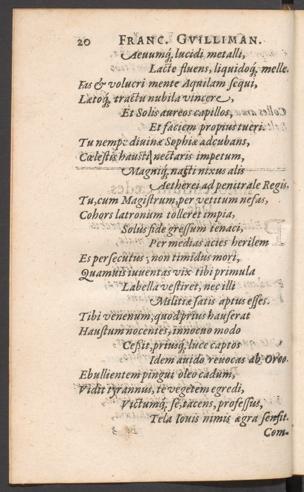 20 FRANC. GVILLIMAN.
Aeuumq́, lucidi metalli,
Lacte fluens, liquidoq́, melle.
Fas & volucri mente Aquilam sequi,
Lætoq́, tractu nubila vincere,
Et Solis aureos capillos,
Et faciem propius tueri.
Tu nempe diuinæ Sophiæ adcubans,
Cælestis hausti nectaris impetum,
Magniq́, nacti nixus alis
Aetherei ad penitrale Regis,
Tu, cum Magistrum, per vetitum nefas,
Cohors latronum tolleret impia,
Solus fide gressum tenaci,
Per medias acies herilem
Es persecutus, non timidus mori,
Quamuis iuuentas vix tibi primula
Labella vestiret, nec illi
Militiæ satis aptus esses.
Tibi venenum, quod prius hauserat
Haustum nocentes, innocuo modo
Cessit, priusq́, luce captos
Idem auido reuocas ab Orco.
Ebullientem pingui oleo cadum,
Vidit tyrannus, te vegetem egredi,
Victumq́, se, tacens, professus,
Tela Iouis nimis ægra sensit.
Com-